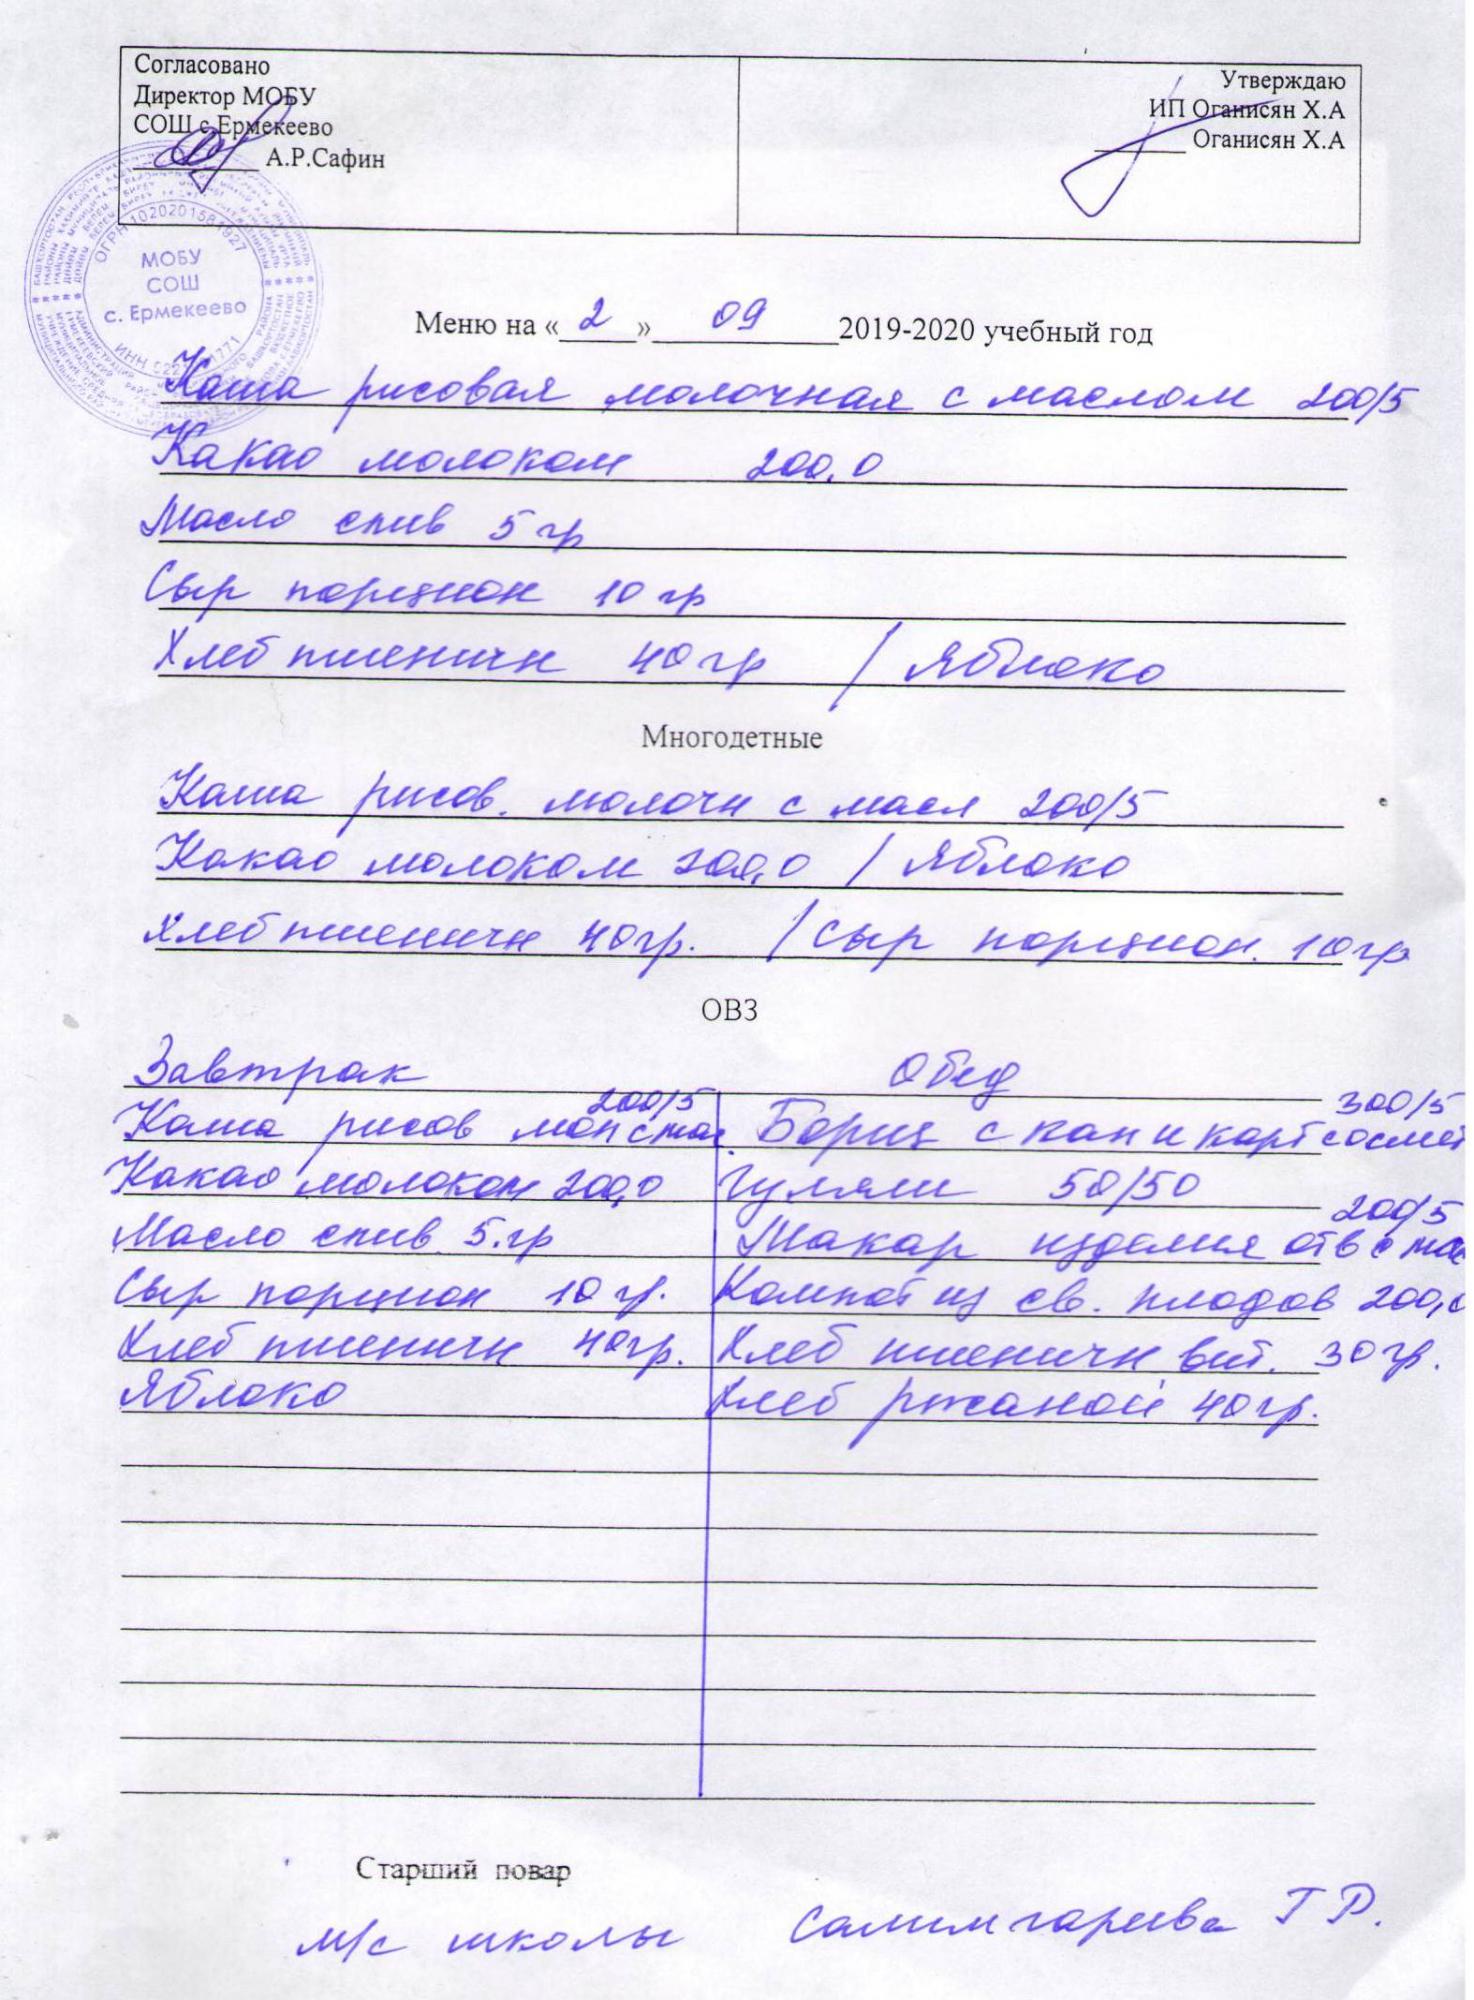 Согласовано
Директор МОБУ
СОШ с.Ермекеево
А.Р.Сафин
Утверждаю
ИП Оганисян Х.А
Оганисян Х.А
МОБУ
СОШ
с. Ермекеево
Меню на « 2 » 09 2019-2020 учебный год
Каша рисовая молочная с маслом 200/5
Какао молоком 200,0
Масло слив 5 гр
Сыр порцион 10 гр
Хлеб пшеничн 40 гр / Яблоко
Многодетные
Каша рисов. молочн с масл 200/5
Какао молоком 200,0 / Яблоко
Хлеб пшеничн 40 гр. / Сыр порцион. 10 гр
ОВЗ
Завтрак Обед
Каша рисов мол с мас. 200/5 Борщ с кап и карт со смет 300/5
Какао молоком 200,0 Гуляш 50/50
Масло слив 5.гр Макар изделия отв с мас 200/5
Сыр порцион 10 гр. Компот из св. плодов 200,0
Хлеб пшеничн 40гр. Хлеб пшеничн вит. 30 гр.
Яблоко Хлеб ржаной 40 гр.
Старший повар
м/с школы Салимгареева Г Р.